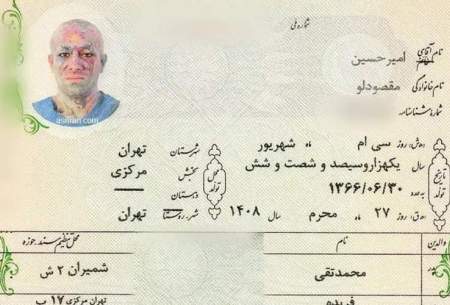 شماره ملی
نام آقای امیرحسین
نام خانوادگی مقصودلو
شماره شناسنامه
روز سی ام ماه شهریور
سال یکهزاروسیصد و شصت و شش
به عدد ۱۳۶۶/۰۶/۳۰
روز ۲۷ ماه محرم سال ۱۴۰۸
تاریخ تولد
شهرستان تهران
بخش مرکزی
دهستان
شهر روستا تهران
محل تولد
asriran.com
والدین نام محل تنظیم سند حوزه
پدر محمدتقی شمیران ۲ ش
فریده تهران مرکزی ۱۷ ب